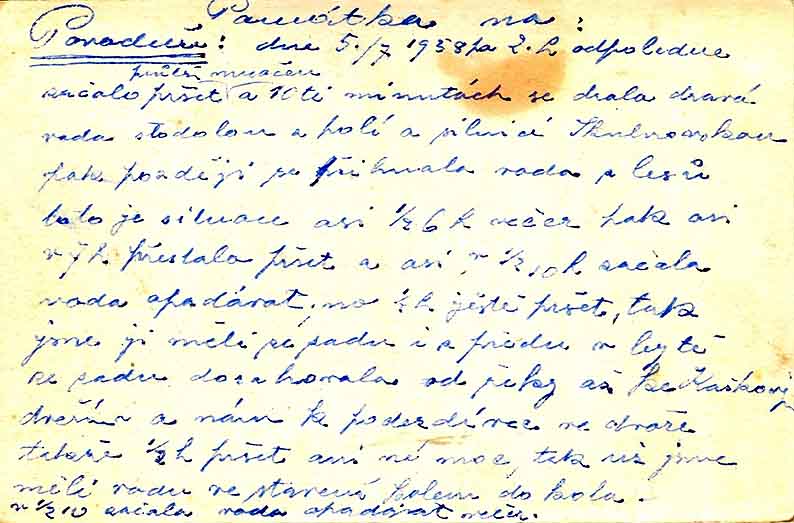 Památka na:
Povodeň: dne 5./7 1958 ha 2.h odpoledne
průtrž mračen
začalo pršet a 10ti minutách se drala dravá
voda stodolou a polí a silnicí
pak později se přihnala voda s lesů
toto je situace asi ½6 h večer pak asi
v 7h přestalo pršet a asi v ½10h začala
voda opadávat, no ½h ještě pršet, tak
jsme ji měli ze zadu i z předu v bytě
ze zadu dosahovala od řeky až ke Kaškovi
dveřím a nám k podezdívce ve dvoře
takže ½h pršet ani né moc, tak už jsme
měli vodu ve stavení kolem do kola.
v ½10 začala voda opadávat večer.